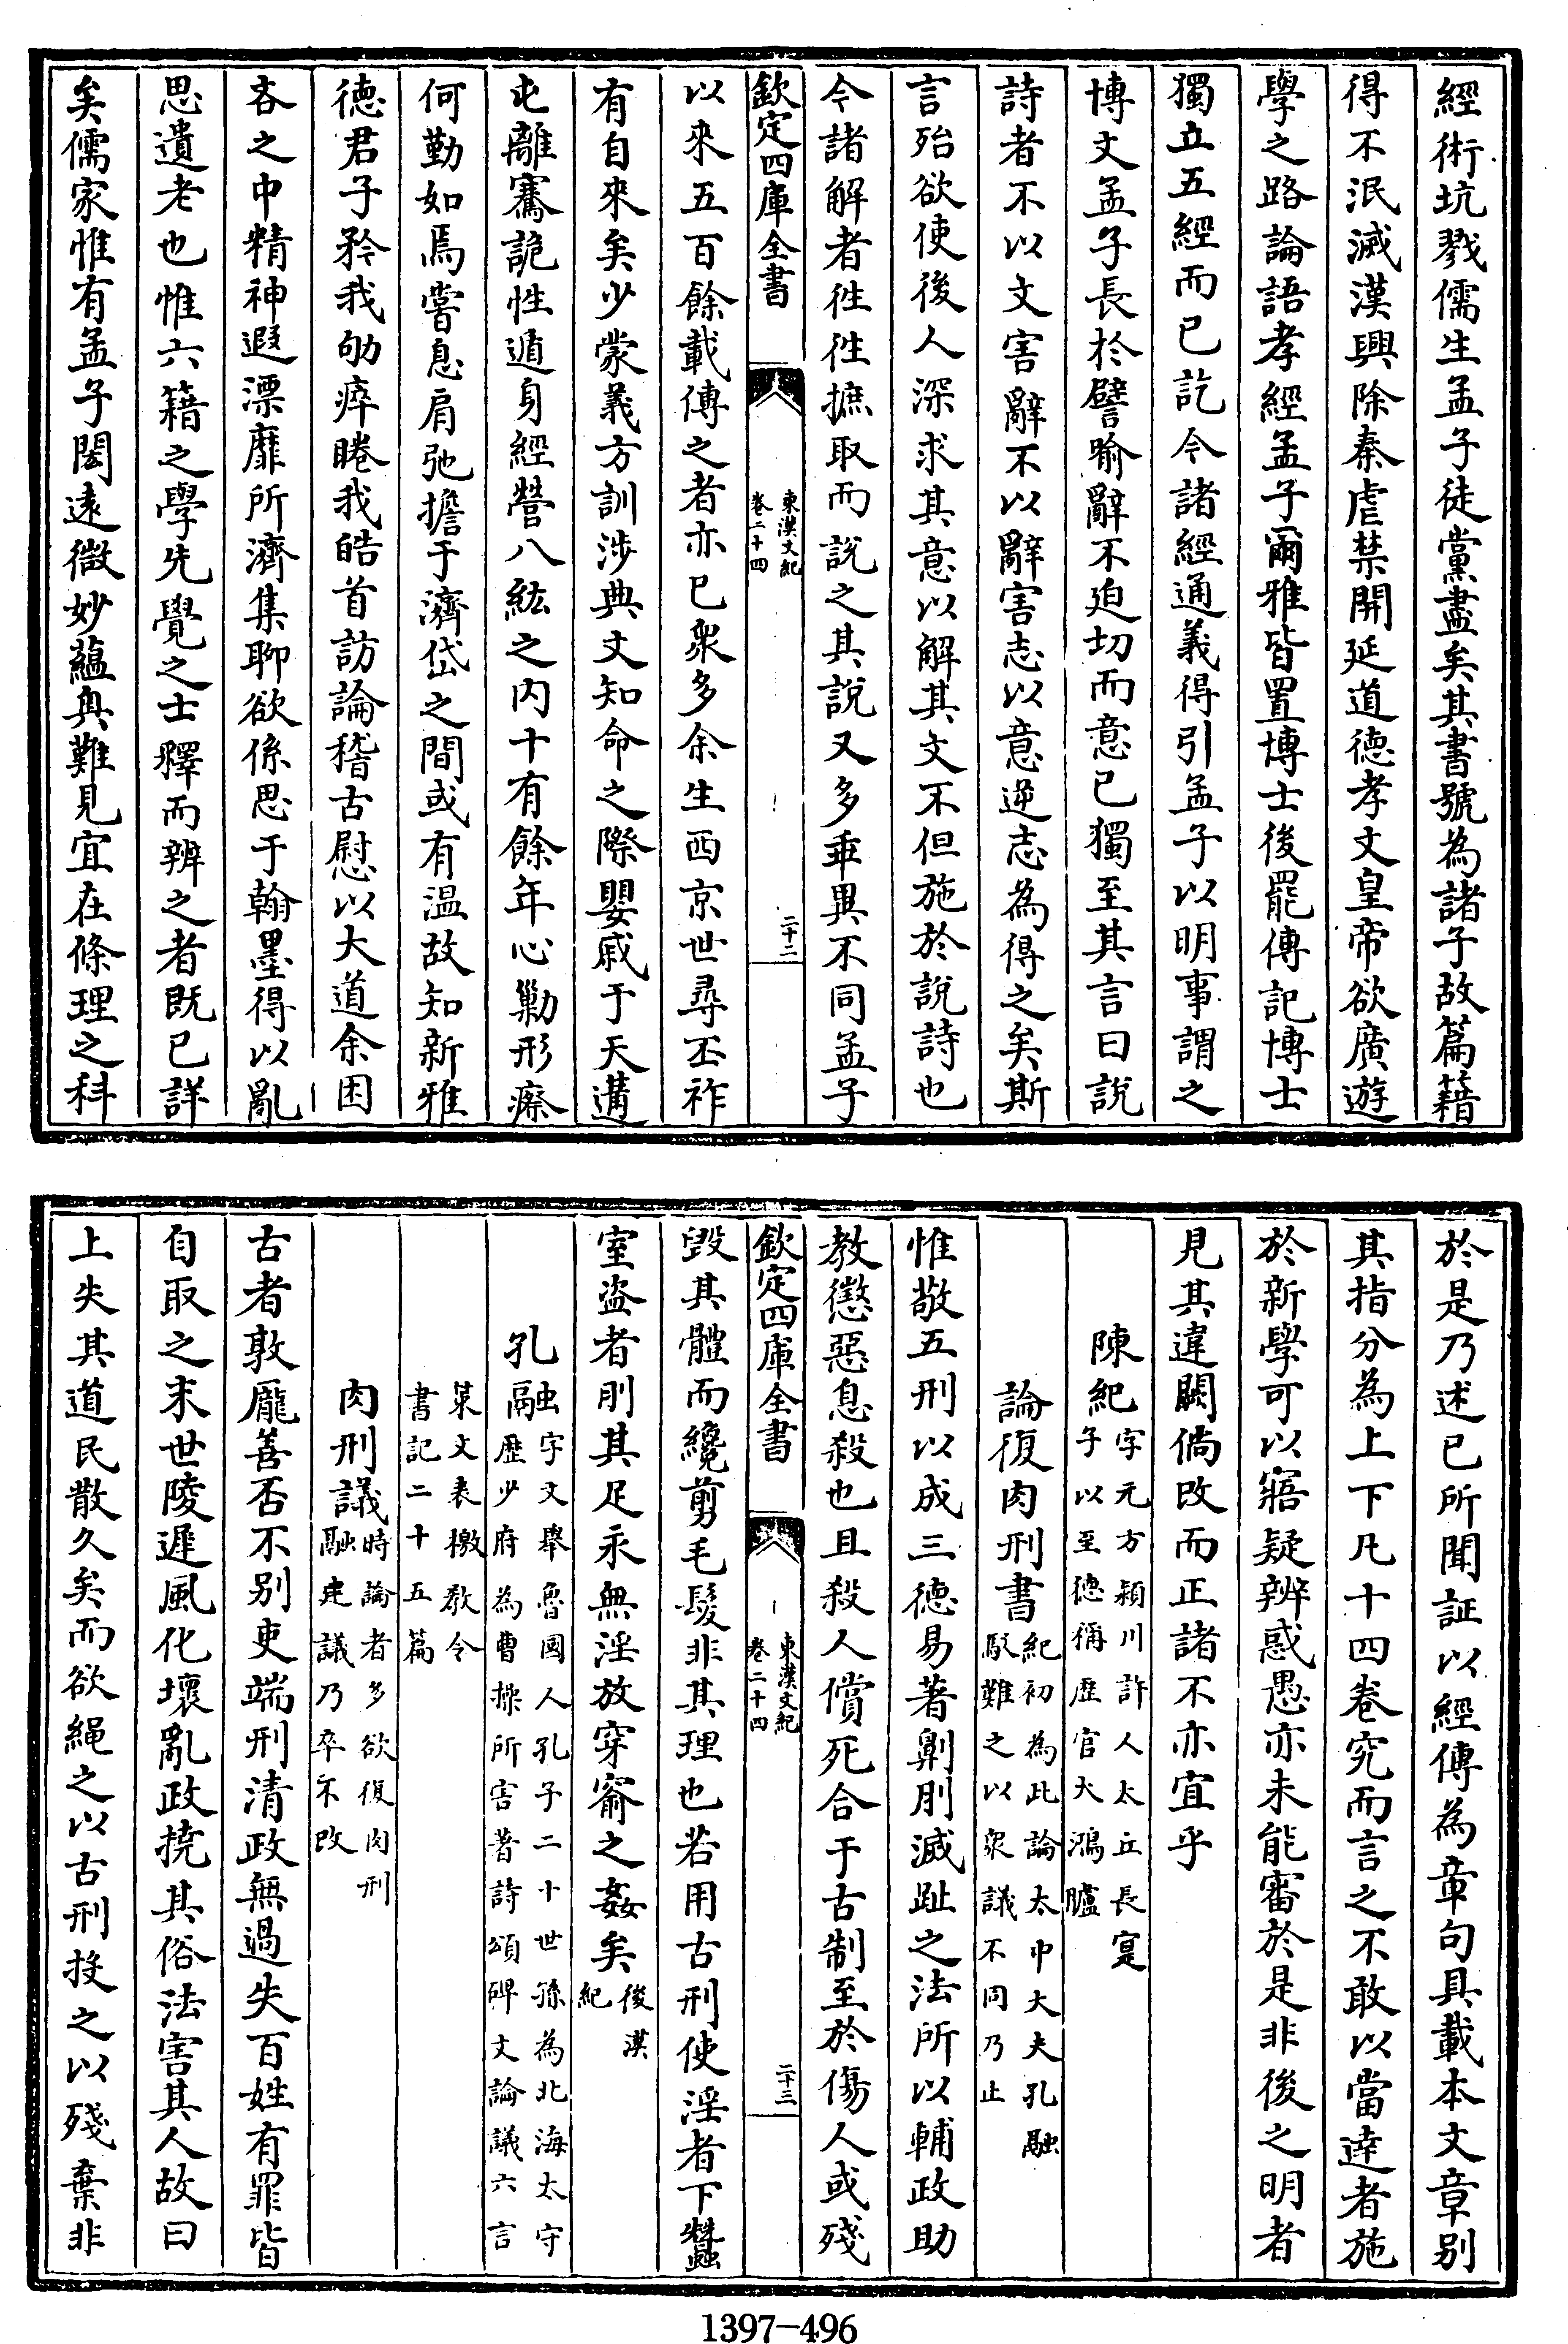 經術坑戮儒生孟子徒黨盡矣其書號為諸子故篇籍
得不泯滅漢興除秦虐禁開延道德孝文皇帝欲廣遊
學之路論語孝經孟子爾雅皆置博士後罷傳記博士
獨立五經而已訖今諸經通義得引孟子以明事謂之
博文孟子長於譬喻辭不迫切而意已獨至其言曰說
詩者不以文害辭不以辭害志以意逆志為得之矣斯
言殆欲使後人深求其意以解其文不但施於說詩也
今諸解者徃徃摭取而說之其說又多乖異不同孟子
欽定四庫全書
東漢文紀
卷二十四
二十二
以來五百餘載傳之者亦已衆多余生西京世尋丕祚
有自來矣少蒙義方訓涉典文知命之際嬰戚于天遘
屯離蹇詭性遁身經營八紘之内十有餘年心勦形瘵
何勤如焉嘗息肩弛擔于濟岱之間或有温故知新雅
德君子矜我劬瘁睠我皓首訪論稽古慰以大道余困
吝之中精神遐漂靡所濟集聊欲係思于翰墨得以亂
思遺老也惟六籍之學先覺之士釋而辨之者既已詳
矣儒家惟有孟子閎遠微妙藴奥難見宜在條理之科
於是乃述已所聞証以經傳為章句具載本文章别
其指分為上下凡十四卷究而言之不敢以當逹者施
於新學可以寤疑辨惑愚亦未能審於是非後之明者
見其違闕儻改而正諸不亦宜乎
陳紀字元方潁川許人太丘長寔
子以至德稱歴官大鴻臚
論復肉刑書紀初為此論太中大夫孔融
駁難之以衆議不同乃止
惟敬五刑以成三德易著劓刖滅趾之法所以輔政助
教懲惡息殺也且殺人償死合于古制至於傷人或殘
欽定四庫全書
東漢文紀
卷二十四
二十三
毁其體而纔剪毛髮非其理也若用古刑使淫者下蠶
室盗者刖其足永無淫放穿窬之姦矣後漢
紀
孔融字文舉魯國人孔子二十世孫為北海太守
歴少府為曹操所害著詩頌碑文論議六言
策文表檄教令
書記二十五篇
肉刑議時論者多欲復肉刑
融建議乃卒不改
古者敦厖善否不别吏端刑清政無過失百姓有罪皆
自取之末世陵遲風化壞亂政撓其俗法害其人故曰
上失其道民散久矣而欲繩之以古刑投之以殘棄非
1397-496